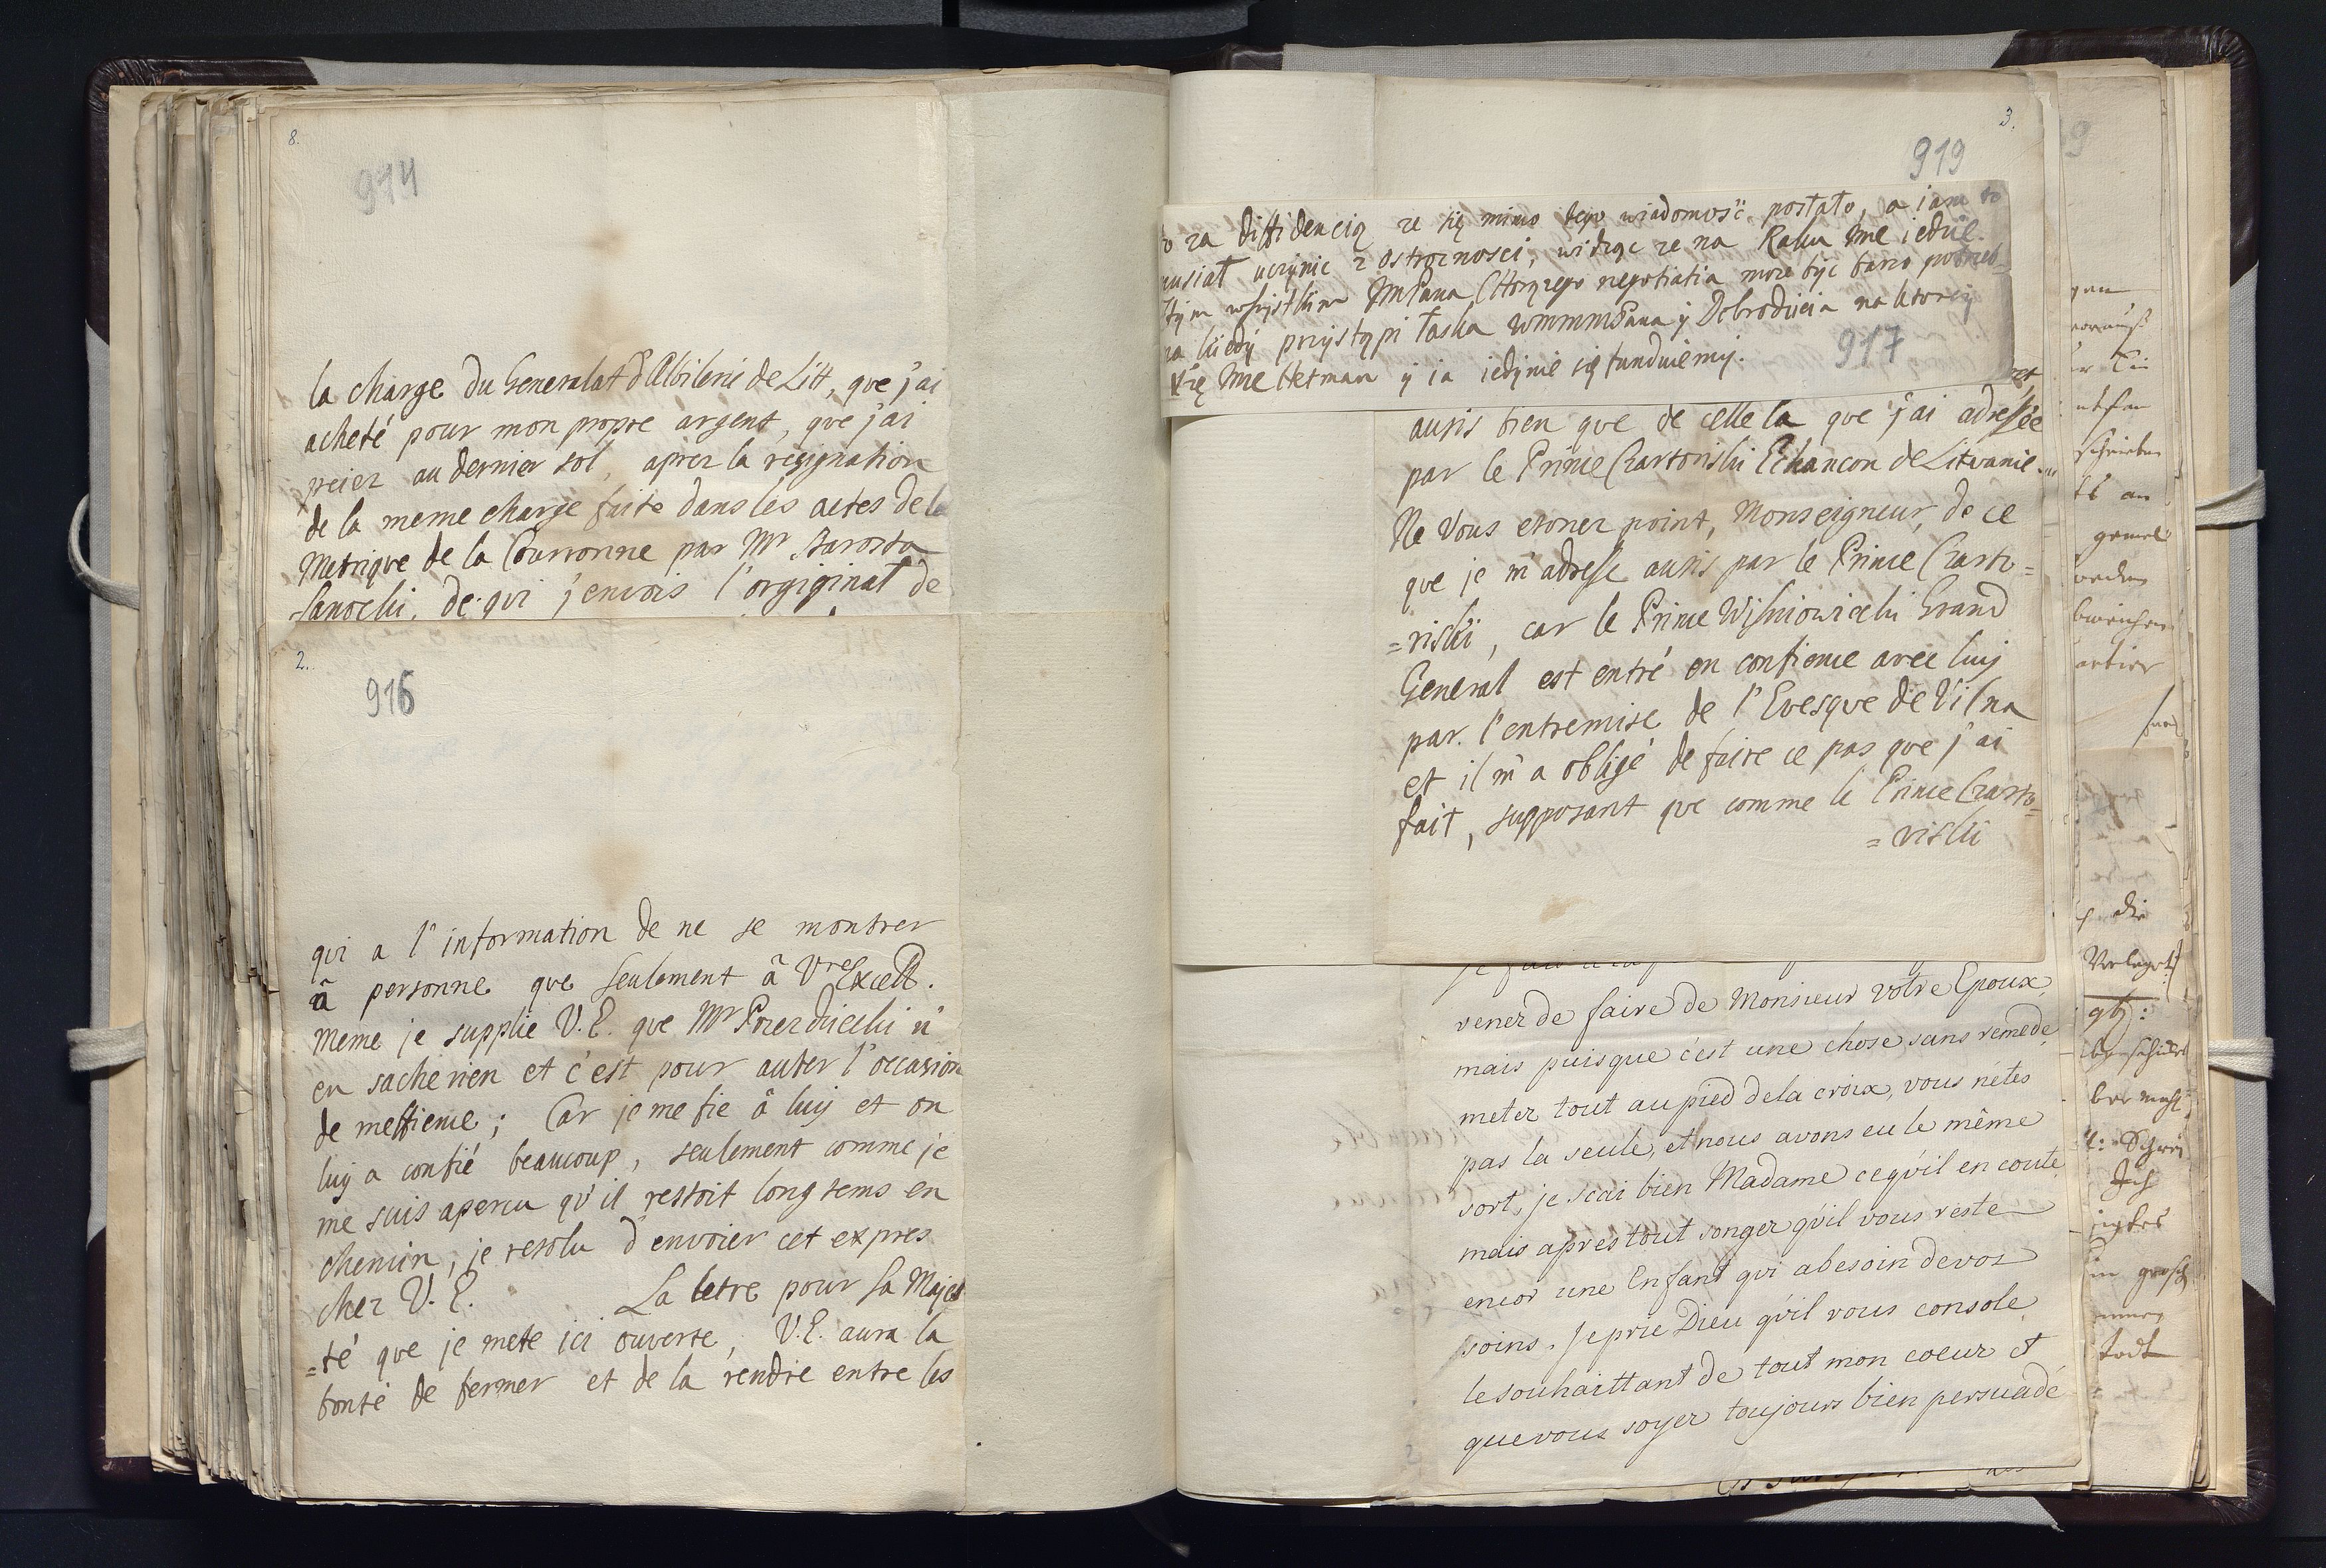 8.
914
la charge du Generalat d'Altilerie de Litt, que j'ai
acheté pour mon propre argent, que j'ai
peiez au dernier sol, aprez la resignation
de la meme charge faite dans les actes de la
Metrique de la Couronne par Mr Starosta
Sanocki, de qui j'envois l'orgiginal de
2.
916
qui a l'information de ne se montrer
â personne que seulement â Vre Excell.
meme je supplie V. E. que Mr Przezdziecki n'
en sache rien et c'est pour auter l'occasion
de meffience; Car je me fie â luy et on
luy a confié beaucoup, seulement comme je
me suis apercu qu'il restoit long tems en
chemin, je resolu d'envoier cet expres
chez V. E. La letre pour Sa Majes
=té que je mete ici ouverte, V. E. aura la
bonté de fermer et de la rendre entre les
3.
919
za diffidencią ze się mimo tego wiadomość postało, a iam to
musiał uczynic z ostroznosci, widząc ze na Raku Jme iedzie.
tym wszystkim JmPana Chorązego negotiatia moze byc barzo potrzeb=
na kiedy przystąpi łaska WmmmPana y Dobrodzieia na ktorey
Xże Jme Hetman y ia iedynie się funduiemy.
917
ausis bien que de celle la que j'ai adressée
par le Prince Czartoriski Echancon de Litvanie.
Ne Vous etonez point, Monseigneur, de ce
que je m'adresse ausis par le Prince Czarto=
=riski, car le Prince Wisniowiecki Grand
General est entré en confience avec luy
par l'entremise de l'Evesque de Vilna
et il m'a obligé de faire ce pas que j'ai
fait, supposant que comme le Prince Czarto=
=riski
venez de faire de Monsieur votre Epoux,
mais puisque c'est une chose sans remede,
metez tout au pied de la croix, vous n'etes
pas la seule, et nous avons eu le même
sort, je scai bien Madame ce qu'il en coute
mais apres tout songez qu'il vous reste
encor une Enfant qui a besoin de vos
soins. Je prie Dieu qu'il vous console,
le souhaittant de tout mon coeur et
que vous soyez toujours bien persuadé
9
schrieben
an
die
Ich
todt